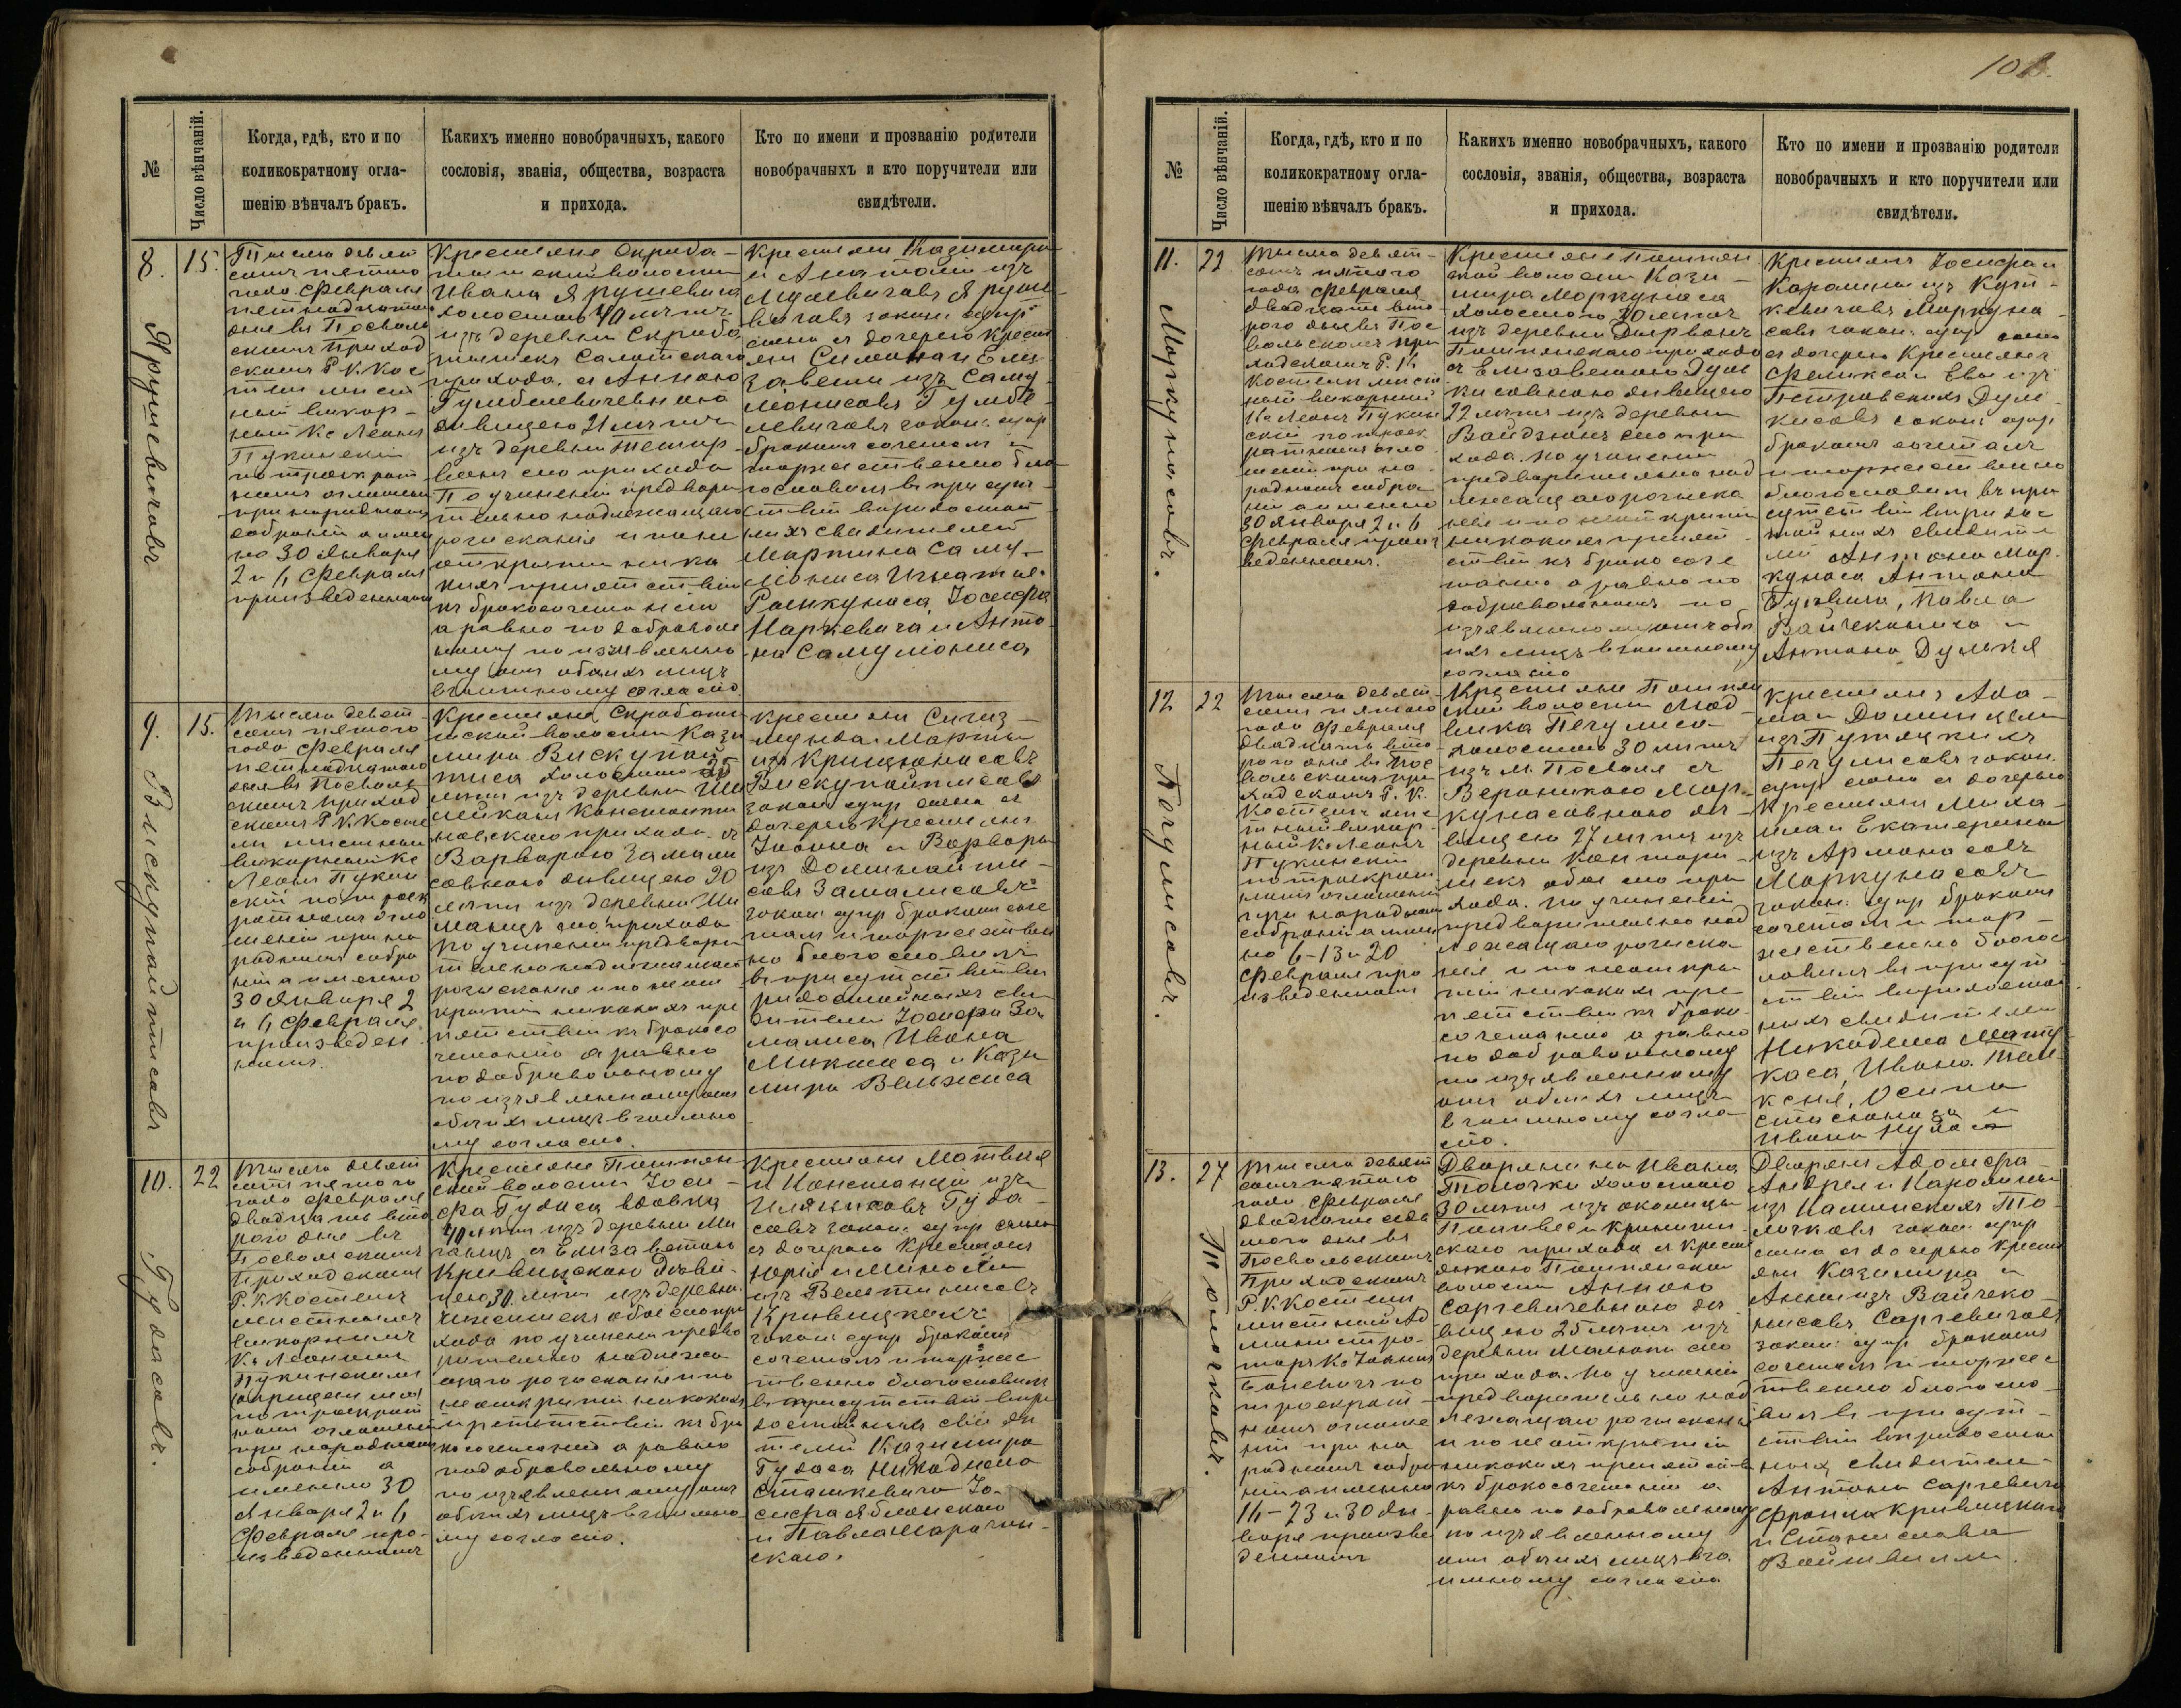 №
Число вѣнчаній.
Когда, гдѣ, кто и по
коликократному огла-
шенію вѣнчалъ бракъ.
Какихъ именно новобрачныхъ, какого
сословія, званія, общества, возраста
и прихода.
Кто по имени и прозванію родители
новобрачныхъ и кто поручители или
свидѣтели.
8.
Ярушевичовъ
15.
Тысяча девят
сотъ пятого
года Февраля
пятнадцатаго
дня въ Посволь
скомъ Приход
скомъ Р. К. Кос
телѣ мѣст
ный викар-
ный Кс Леонъ
Пукинскій
по троекрат
номъ оглашеніи
при народномъ
собраніи а имен
но 30 Января
2 и 6 Февраля
произведенномъ
Крестьяне Скрабо-
тишской волости
Ивана Ярушевича
холостого 40 лѣтъ
изъ деревни Скрабо
тишекъ Салатскаго
прихода съ Анною
Гумбелевичевною
дѣвицею 21 лѣтъ
изъ деревни
сего прихода
По учиненіи предвари
тельно надлежащаго
розысканія и по не
открытіи ника
кихъ препятствій
къ бракосочетанію
а равно по доброволь
ному по изъявленно
му отъ обоихъ лицъ
взаимному согласію.
Крестьянъ Казимира
и Анатоліи изъ
Яруше
вичовъ законн. супр
сына съ дочерью Крестья
нъ Симона и Ели
заветы изъ Саму
лёнисовъ Гумбе
левичовъ законн. супр
бракомъ сочеталъ и
торжественно бла
гословилъ въ присут
ствіи вѣродостой
ныхъ свидѣтелей
Мартина Саму-
лёниса Игнатія
Ранкунаса, Іосифа
Маркевича и Анто
на Самулёниса
9.
Вискупайтисовъ
15.
Тысяча девят
сотъ пятого
года Февраля
пятнадцатаго
дня въ Посволь
скомъ Приход
скомъ Р. К. Косте
лѣ мѣстный
викарный Кс
Леонъ Пукин
скій по троек
ратномъ огла
шеніи при на
родномъ собра
ніи а именно
30 Января 2
и 6 Февраля
произведен
номъ.
Крестьяне Скработи
шской волости Кази
мира Вискупай
тиса холостого 25
лѣтъ изъ деревни
Константи
новскаго прихода съ
Варварою Замали
совною дѣвицею 20
лѣтъ изъ деревни
сего прихода
По учиненіи предвари
тельно надлежащаго
розысканія и по неот
крытіи никакихъ пре
пятствій къ бракосо
четанію а равно
по добровольному
по изъявленному отъ
обоихъ лицъ взаимно
му согласію.
Крестьянъ Сигиз-
мунда и Марты
изъ Крищюнасовъ
Вискупайтисовъ
законн. супр. сына съ
дочерью крестьянъ
Іоанна и Варвары
изъ Долинайти-
совъ Замалисовъ
законн. супр бракомъ соче
талъ и торжествен
но благословилъ
въ присутствіи вѣ
родостойныхъ сви
дѣтелей Іосифа За
малиса Ивана
Миклиса и Кази
мира Вельжиса
10.
Гудасовъ.
22
Тысяча девят
сотъ пятого
года Февраля
двадцать вто
рого дня въ
Посвольскомъ
Приходскомъ
Р. К Костелѣ
мѣстнымъ
викарнымъ
Кс Леономъ
Пукинскимъ
по троекрат
номъ оглашеніи
при народномъ
собраніи а
именно 30
Января 2 и 6
Февраля про-
изведенномъ
Крестьяне Пошнян
ской волости Іоси-
фа Гудаса вдовца
40 лѣтъ изъ деревни Ми
ганцъ съ Елизаветою
Кривицкою дѣви
цею 30 лѣтъ изъ деревни
обое сего при
хода по учиненіи предва
рительно надлежа
щаго розысканія и по
неоткрытіи никакихъ
препятствій къ бра
косочетанію а равно
по добровольному
по изъявленному отъ
обоихъ лицъ взаимно
му согласію.
Крестьянъ Матвея
и Констанціи изъ
Гуда-
совъ законн. супр сына
съ дочерью Крестьянъ
Юрія и
изъ
Кривицкихъ
законн супр бракомъ
сочеталъ и торжес
твенно благословилъ
въ присутствіи вѣро
достойныхъ свидѣ
телей Казимира
Гудаса Никодима
Сташкевича Іо-
сифа Яблонскаго
и Павла
скаго.
106.
№
Число вѣнчаній.
Когда, гдѣ, кто и по
коликократному огла-
шенію вѣнчалъ бракъ.
Какихъ именно новобрачныхъ, какого
сословія, званія, общества, возраста
и прихода.
Кто по имени и прозванію родители
новобрачныхъ и кто поручители или
свидѣтели.
11.
Моркунасовъ.
22
Тысяча девят-
сотъ пятого
года Февраля
двадцать вто
рого дня въ Пос
вольскомъ при
ходскомъ Р. К
Костелѣ мѣст
ный викарный
Кс Леонъ Пукин
скій по троек
ратномъ огла
шеніи при на
родномъ собра
ніи а именно
30 Января 2 и 6
Февраля произ
веденномъ.
Крестьяне Пошнян
ской волости Кази-
мира Моркунаса
холостого 30 лѣтъ
изъ деревни Дирвонъ
Пошнянскаго прихода
съ Елизаветою Дуль
кисовною дѣвицею
22 лѣтъ изъ деревни
Вайдзюнъ сего при
хода. По учиненіи
предварительно над
лежащаго розыска
нія и по неоткрытіи
никакихъ препят
ствій къ бракосоче
танію а равно по
добровольному по
изъявленному отъ обо
ихъ лицъ взаимному
согласію
Крестьянъ Іосифа и
Каролины изъ
Моркуна-
совъ законн. супр сына
съ дочерью Крестьянъ
Феликса и Евы изъ
Петровскихъ Дуль
кисовъ законн супр
бракомъ сочеталъ
и торжественно
благословилъ въ при
сутствіи вѣродос
тойныхъ свидѣте
лей Антона Мор
кунаса Антона
Павла
Вайчекониса и
Антона Дулькя
12
Печулисовъ.
22
Тысяча девят
сотъ пятого
года Февраля
двадцать вто
рого дня въ Пос
вольскомъ при
ходскомъ Р. К.
Костелѣ мѣс
тный викар
ный Кс Леонъ
Пукинскій
по троекрат
номъ оглашеніи
при народномъ
собраніи а имен
но 6-13 и 20
Февраля про
изведенномъ
Крестьяне Пошнян
ской волости Люд-
вика Печулиса
холостого 30 лѣтъ
изъ м. Посволя съ
Вероникою Мор-
кунасовною дѣ
вицею 27 лѣтъ изъ
деревни Кантори
шекъ обое сего при
хода. По учиненіи
предварительно над
лежащаго розыска
нія и по неоткры
тіи никакихъ пре
пятствій къ брако
сочетанію а равно
по добровольному
по изъявленному
отъ обоихъ лицъ
взаимному согла
сію.
Крестьянъ Ада-
ма и Доминцели
изъ Путяцкихъ
Печулисовъ закон.
супр сына съ дочерью
крестьянъ Миха-
ила и Екатерины
изъ Армонасовъ
Моркунасовъ
законн. супр бракомъ
сочеталъ и тор-
жественно благос
ловилъ въ присут
ствіи вѣродостой
ныхъ свидѣтелей
Никодима Мату
каса, Ивана
Осипа
Стасюнаса и
Ивана
13.
Толочковъ.
27
Тысяча девят
сотъ пятого
года Февраля
двадцать седь
мого дня въ
Посвольскомъ
Приходскомъ
Р. К Костелѣ
мѣстный Ад
министра-
торъ Кс Іоаннъ
по
троекрат-
номъ оглаше
ніи при на
родномъ собра
ніи а именно
16-23 и 30 Ян
варя произве
денномъ
Дворянина Ивана
Толочки холостого
30 лѣтъ изъ околицы
скаго прихода съ крестья
нкою Пошнянской
волости Анною
Саргевичевною дѣ
вицею 25 лѣтъ изъ
деревни сего
прихода. По учиненіи
предварительно над
лежащаго розысканія
и по неоткрытіи
никакихъ препятствій
къ бракосочетанію а
равно по добровольному
по изъявленному
отъ обоихъ лицъ вза
имному согласію
Дворянъ Адольфа
Андрея и Каролины
изъ Каминскихъ То
лочковъ законн супр
сына съ дочерью крестья
нъ Казимира и
Анны изъ Вайчеко
нисовъ Саргевичовъ
законн супр бракомъ
сочеталъ и торжес
твенно благосло
вилъ въ присут-
ствіи вѣродостой
ныхъ свидѣтелей
Антона Саргевича
Франца Кривицкаго
и Станислава
Войтвилли.